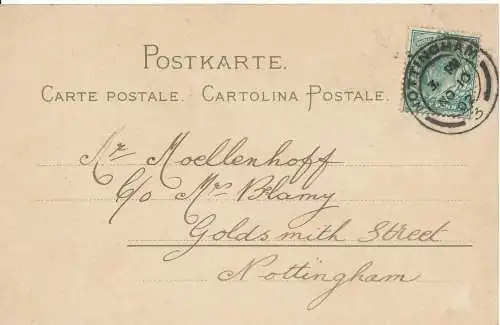 POSTKARTE.
CARTE POSTALE. CARTOLINA POSTALE.
NOTTINGHAM
Mr Moellenhoff
c/o Mrs Blamy
Goldsmith Street
Nottingham